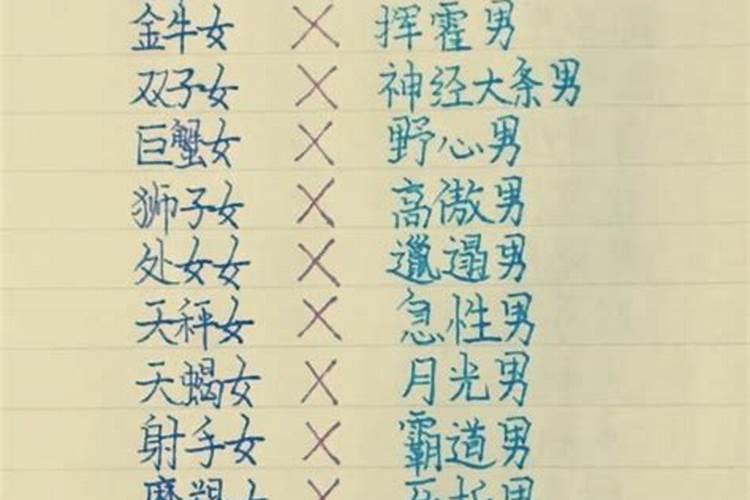 金牛女 × 挥霍男
双子女 × 神经大条男
巨蟹女 × 野心男
狮子女 × 高傲男
处女女 × 邋遢男
天秤女 × 急性男
天蝎女 × 月光男
射手女 × 霸道男
×